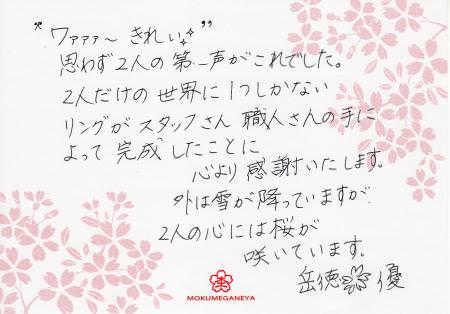 "ワァァァ～ きれぃ"
思わず2人の第一声がこれでした。
2人だけの世界に1つしかない
リングがスタッフさん 職人さんの手に
よって 完成したことに
心より 感謝いたします。
外は雪が降っていますが
2人の心には桜が
咲いています。
岳徳 優
MOKUMEGANEYA